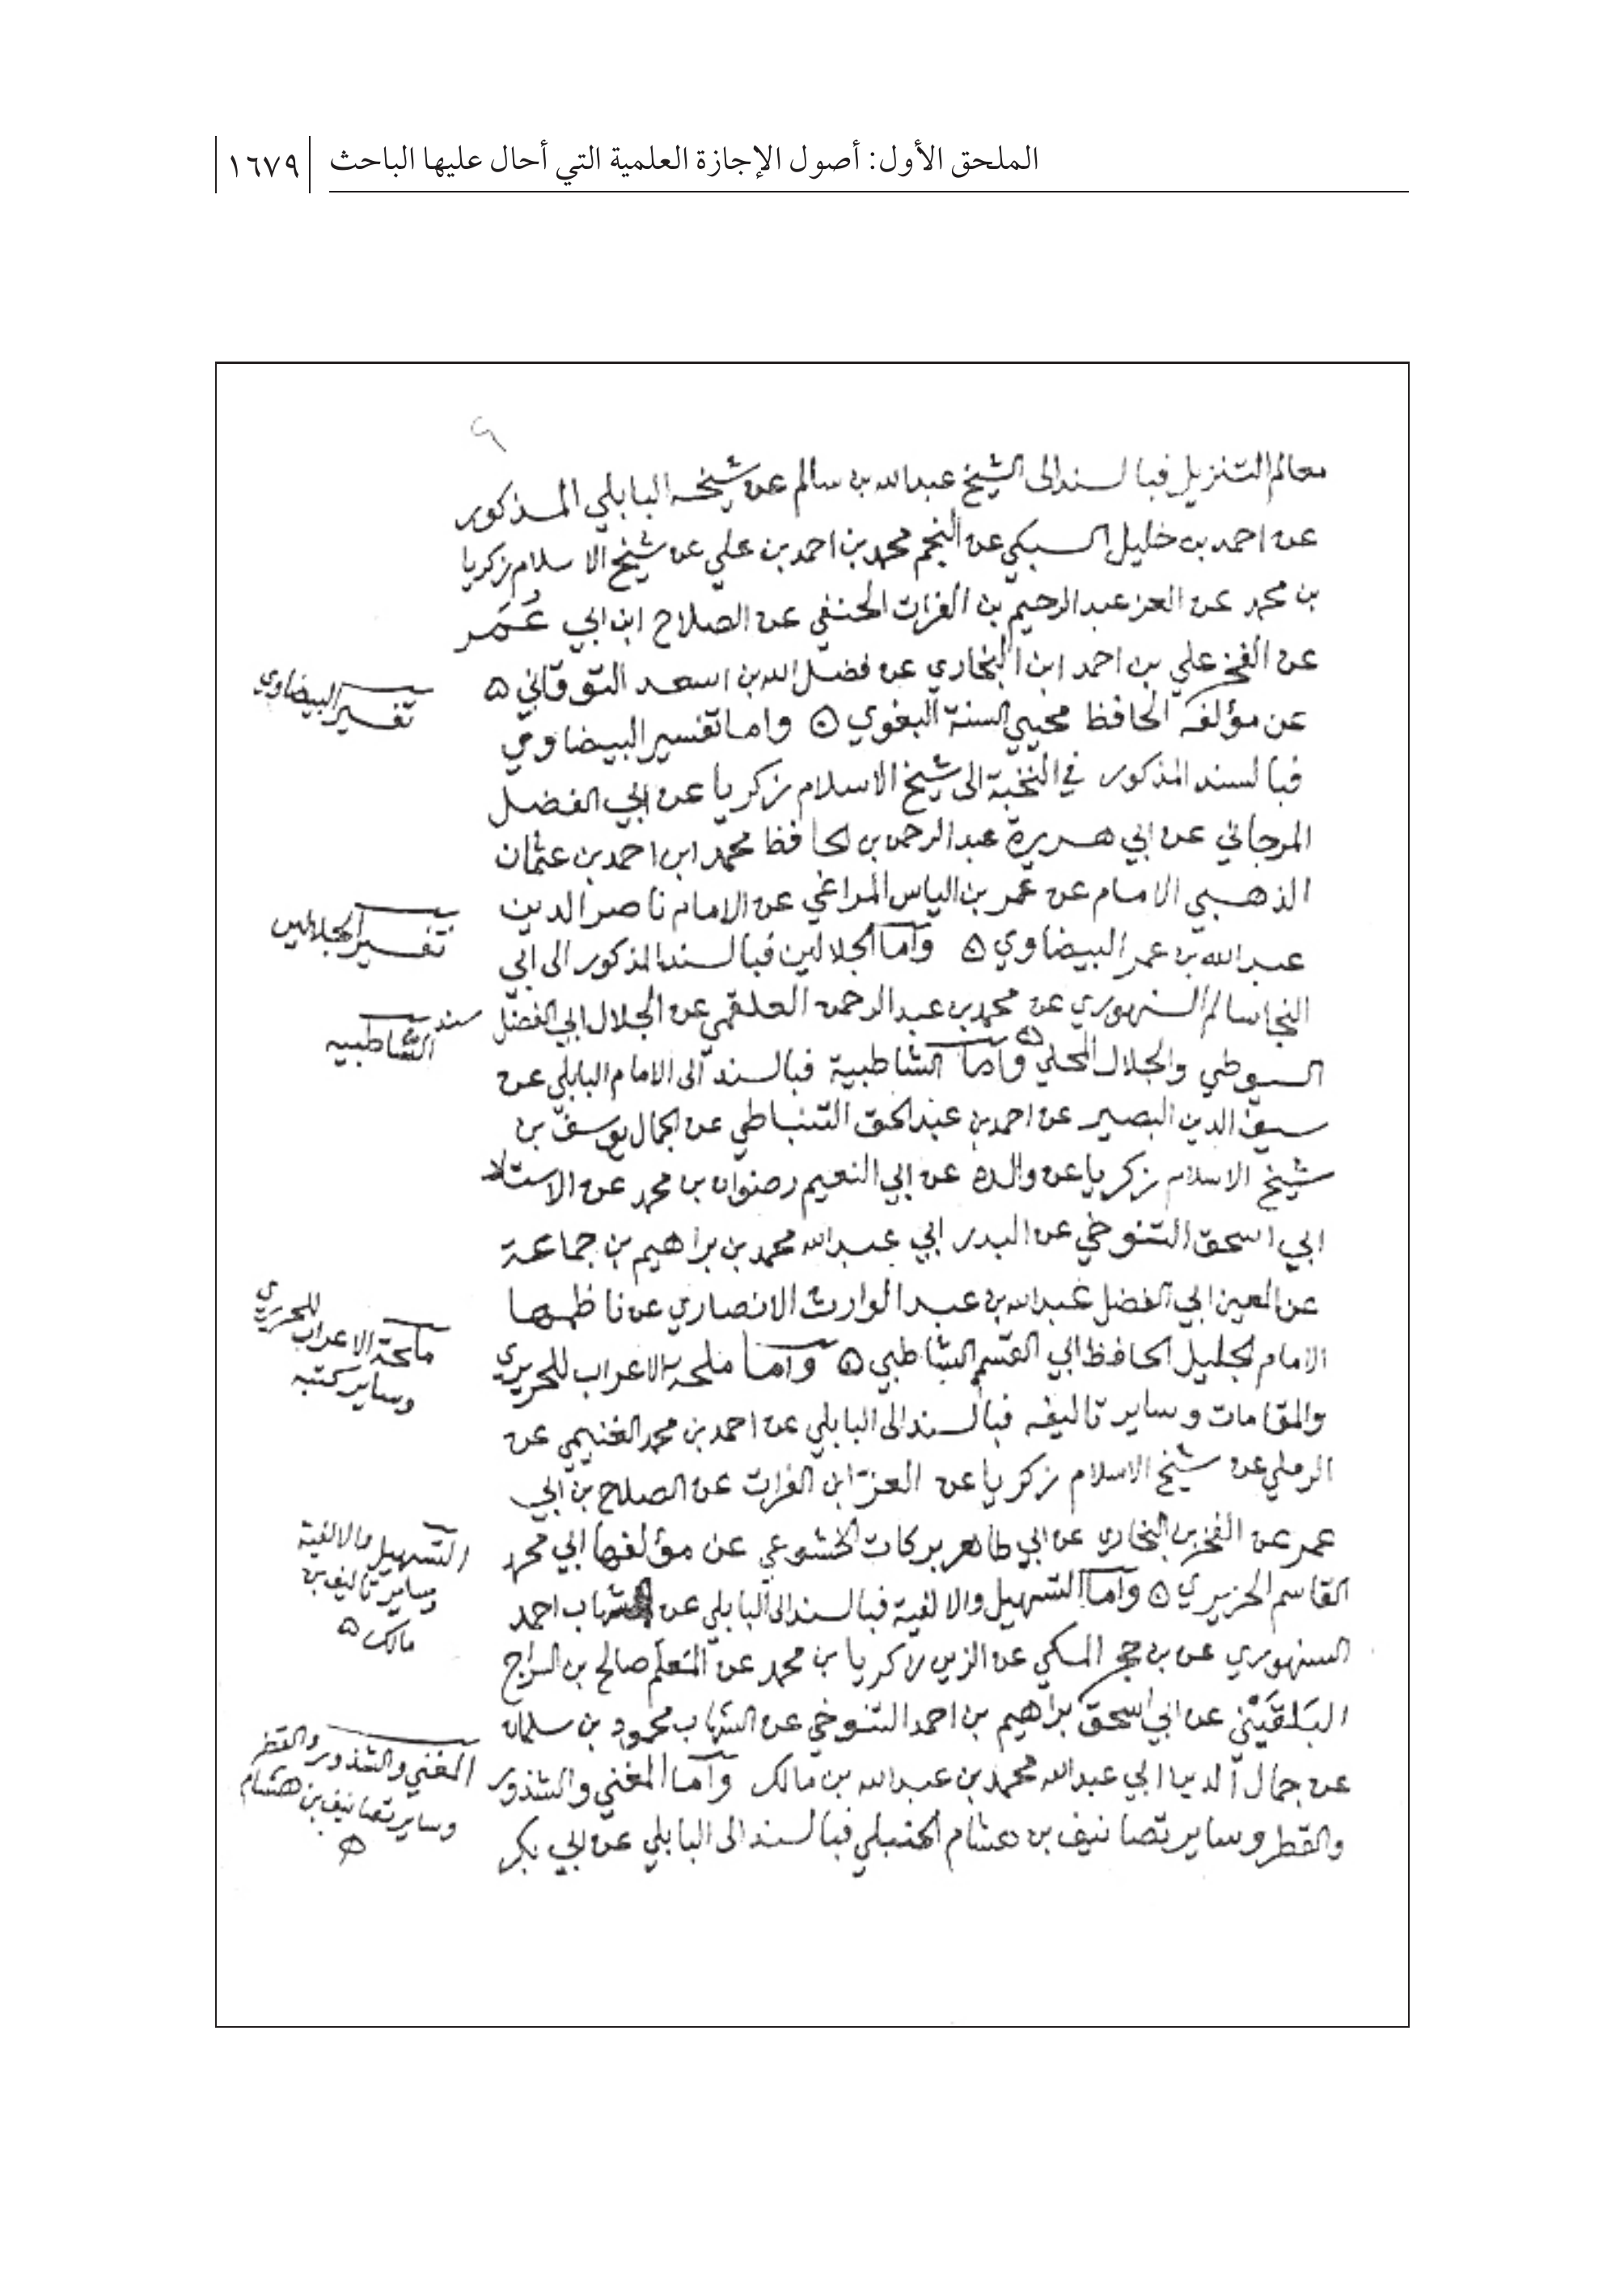 الملحق الأول: أصول الإجازة العلمية التي أحال عليها الباحث
١٦٧٩
٩
معالم التنزيل فبالسند الى الشيخ عبد الله بن سالم عن شيخه البابلي المذكور
عن احمد بن خليل السبكي عن النجم محمد بن احمد بن علي عن شيخ الاسلام زكريا
بن محمد عن العز عبد الرحيم بن الفرات الحنفي عن الصلاح ابن ابي عُمَر
عن الفخر علي بن احمد ابن البخاري عن فضل الله بن اسعد التوقاني ه
تفسير البيضاوي
عن مؤلفه الحافظ محيي السنة البغوي ه واما تفسير البيضاوي
فبالسند المذكور في النخبة الى شيخ الاسلام زكريا عن ابي الفضل
المرجاني عن ابي هريرة عبد الرحمن بن لحافظ محمد ابن احمد بن عثمان
الذهبي الامام عن عمر بن الياس المراغي عن الامام ناصر الدين
تفسير الجلالين
عبد الله بن عمر البيضاوي ه واما الجلالين فبالسند المذكور الى ابي
النجا سالم السنهوري عن محمد بن عبد الرحمن العلقمي عن الجلال ابي الفضل
سند الشاطبيه
السيوطي والجلال المحلي ه واما الشاطبية فبالسند الى الامام البابلي عن
سيف الدين البصير عن احمد بن عبد الحق التنباطي عن الجمال يوسف بن
شيخ الاسلام زكريا عن والده عن ابي النعيم رضوان بن محمد عن الاستاد
ابي اسحق التنوخي عن البدر ابي عبد الله محمد بن براهيم بن جماعة
عن المعين ابي الفضل عبد الله بن عبد الوارث الانصاري عن ناظمها
ملحة الاعراب للحريري
وساير كتبه
الامام لجليل الحافظ ابي القسم الشاطبي ه واما ملحة الاعراب للحريري
والمقامات وساير تاليفه فبالسند الى البابلي عن احمد بن محمد الغنيمي عن
الرملي عن شيخ الاسلام زكريا عن العز ابن الفرات عن الصلاح بن ابي
عمر عن الفخر بن البخاري عن ابي طاهر بركات الخشوعي عن مؤلفها ابي محمد
التسهيل والالفية
وساير تاليف بن
مالك ه
القاسم الحريري ه واما التسهيل والالفية فبالسند الى البابلي عن الشهاب احمد
السنهوري عن بن حجر المكي عن الزين زكريا بن محمد عن العلم صالح بن السراج
البَلقَيني عن ابي اسحق براهيم بن احمد التنوخي عن الشهاب محمود بن سلمان
المغني والشذور والقطر
وساير تصانيف بن هشام
ه
عن جمال الدين ابي عبد الله محمد بن عبد الله بن مالك واما المغني والشذور
والقطر وساير تصانيف بن هشام الحنبلي فبالسند الى البابلي عن ابي بكر